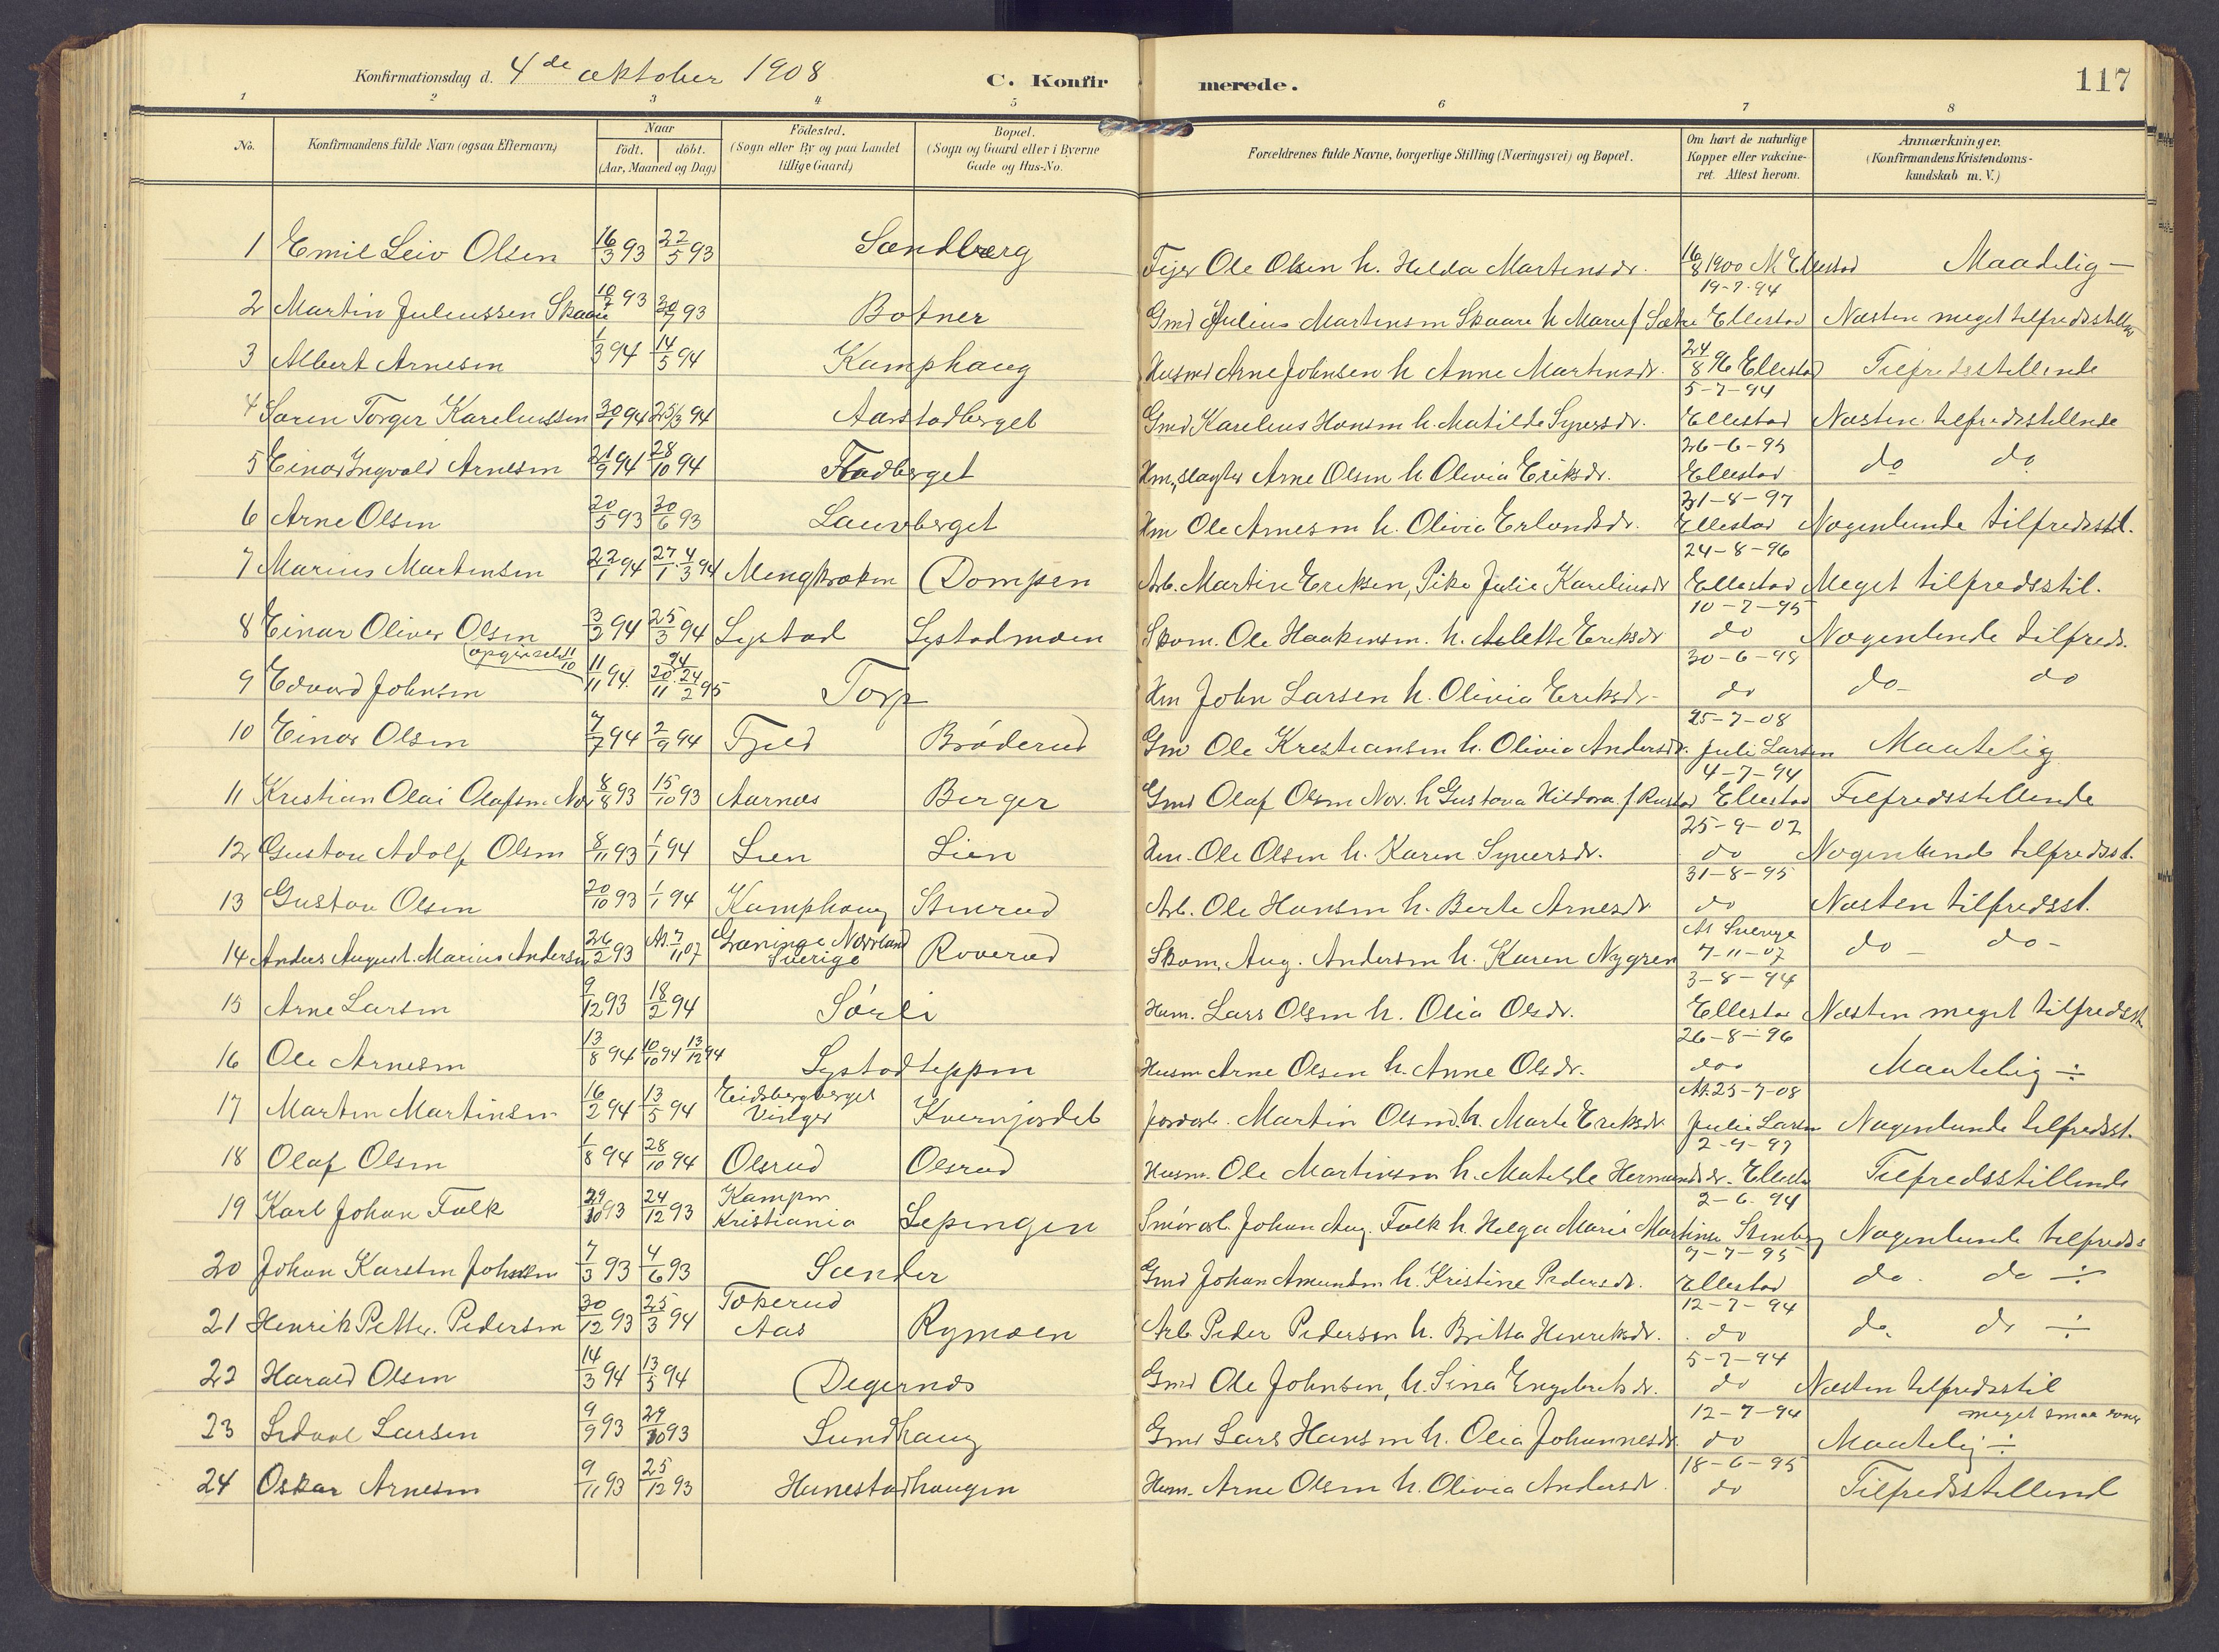 Konfirmationsdag d. 4de oktober 1908 C. Konfirmerede. 117
1 2 3 4 5 6 7 8
No. Konfirmandens fulde Navn (ogsaa Efternavn) Naar født. døbt. (Aar, Maaned og Dag) Födested. (Sogn eller By og paa Landet tillige Gaard) Bopæl. (Sogn og Gaard eller i Byerne Gade og Hus-No. Forældrenes fulde Navne, borgerlige Stilling (Næringsvei) og Bopæl. Om havt de naturlige Kopper eller vakcineret. Attest herom. Anmærkninger. (Konfirmandens Kristendomskundskab m. V.)
1 Emil Leiv Olsen 16/3 93 22/5 93 Sandberg Ole Olsen h. Helda Martinsdr. 16/8 1900 M Ellestad Maadelig —
2 Martin Juliussen Skaare 10/7 93 30/7 93 Botner Gmd Julius Martinsen Skaare h Marie f Sætre 19-7-94 Ellestad Næsten meget tilfredsstillen
3 Albert Arnesen 1/3 94 14/5 94 Kamphaug Husmd Arne Johnsen h Anne Martinsdr. 24/8 96 Ellestad Tilfredsstillende
4 Søren Torger Kareliussen 30/1 94 25/3 94 Aarstadberget Gmd Karelius Hansen h. Matilde Syversdr. 5-7-94 Ellestad Næsten tilfredsstillende
5 Einar Ingvald Arnesen 21/9 94 28/10 94 Fladberget Hm, slagter Arne Olsen h Olivia Eriksdr. 26-6-95 Ellestad do do
6 Arne Olsen 20/5 93 30/6 93 Lauvberget Hm Ole Arnesen h. Olivia Erlandsdr. 31-8-97 Ellestad Nogenlunde tilfredsst.
7 Marius Martinsen 22/1 94 27/1 4/3 94 Mengkroken Dompen Arb. Martin Eriksen, Pike Julie Kareliusdr 24-8-96 Ellestad Meget tilfredsstil.
8 Einar Oliver Olsen 3/3 94 25/3 94 Systad Systadmoen Skom. Ole Haakensen. h. Aslette Eriksdr 10-7-95 do Nogenlunde tilfreds.
9 Edvard Johnsen 11/11 94. Torp Hm John Larsen h. Olivia Eriksdr- 30-6-98 do do- do
10 Einar Olsen 7/7 94 2/9 94 Fjeld Bröderud Gm Ole Kristiansen h. Olivia Andersdr. 25-7-08 Juli Larsen Maatelig
11 Kristian Olai Olafsen Nor 8/8 93 15/10 93 Aarnæs Berger Gmd Olaf Olsen Nor. h Gustava Hildora f Rustad 4-7-94 Ellestad Tilfredsstillende
12 Gustav Adolf Olsen 8/11 93 1/1 94 Lien Lien Hm. Ole Olsen h. Karen Syversdr. 25-9-02 do Nogenlunde tilfredsst.
13 Gustav Olsen 20/10 93 1/1 94 Kamphaug Stenrud Arb. Ole Hansen h. Berte Arnesdr 31-8-95 do Næsten tilfredsst.
14 Anders August Marius Andersen 26/12 93 At. 7/11 07 Græninge Norrland Sverige Roverud Skom, Aug. Andersen h. Karen Nygren At Sverige 7-11-07 do - do -
15 Arne Larsen 9/12 93 18/2 94 Sörli Husm. Lars Olsen h. Olia Olsdr. 3-8-94 Ellestad Næsten meget tilfredsst
16 Ole Arnesen 13/8 94 10/10 94 13/12 94 Systadteppen Husm Arne Olsen h. Anne Olsdr. 26-8-96 do Maatelig ÷
17 Martin Martinsen 16/2 94 13/5 94 Eidsbergberget Vinger Kvernjordet Jordarb. Martin Olsen h. Marte Eriksdr At. 25-7-08 Julie Larsen Nogenlunde tilfredsst.
18 Olaf Olsen 1/8 94 28/10 94 Olsrud Olsrud Husm. Ole Martinsen h. Matilde Hermandsdr. 2-9-97 Ellestad Tilfredsstillende
19 Karl Johan Falk 29/10 93 24/12 93 Kampen Kristiania Sepingen Johan Aug. Falk h. Helga Marie Martinse Stenberg 2-6-94 Nogenlunde tilfredss
20 Johan Karsten Johnsen 7/3 93 4/6 93 Sander Gmd Johan Amundsen h. Kristine Pedersdr. 9-7-95 Ellestad do. do ÷
21 Henrik Petter Pedersen 30/12 93 25/3 94 Tokerud Aas Rymoen Arb Peder Pedersen h. Britta Henriksdr. 12-7-94 do do. do ÷
22 Harald Olsen 14/3 94 13/5 94 Degernes Gmd Ole Johnsen, h. Sina Engebretsdr. 5-7-94 do Næsten tilfredsstil
23 Larsen 9/9 93 29/10 93 Sundhaug Gmd Lars Hansen h. Olea Johannesdr. 12-7-94 do Maatelig ÷ meget smaa
24 Oskar Arnesen 9/11 93 25/12 93 Hunestadhaugen Husm. Arne Olsen h. Olivia Andersdr. 18-6-95 do Tilfredsstillend